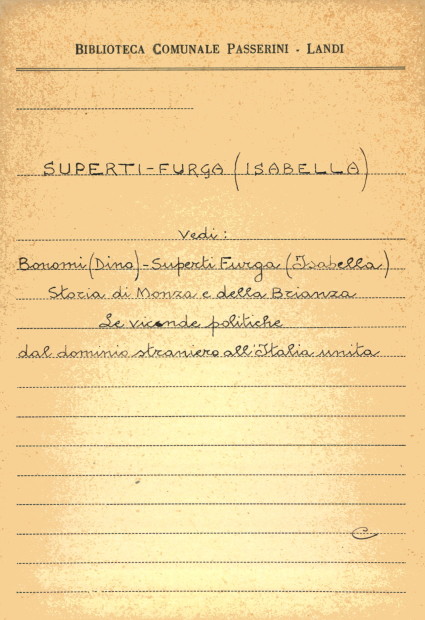 BIBLIOTECA COMUNALE PASSERINI - LANDI
SUPERTI-FURGA (ISABELLA)
Vedi:
Bonomi (Dino) - Superti Furga (Isabella)
Storia di Monza e della Brianza
Le vicende politiche
dal dominio straniero all'Italia unita
C